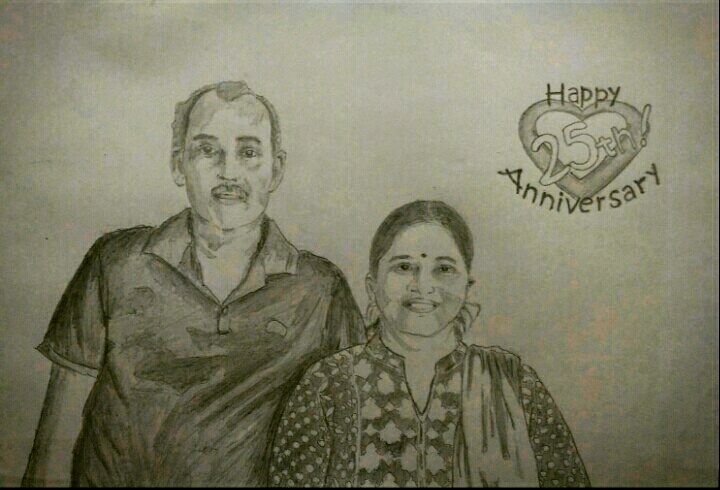 Happy
25th!
Anniversary